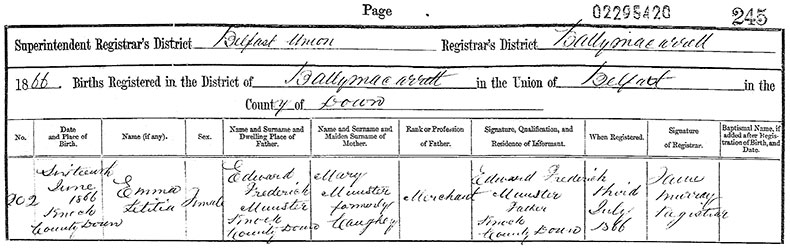 Page 02295420 245
Superintendent Registrar's District Belfast Union Registrar's District Ballymacarrett
1866. Births Registered in the District of Ballymacarrett in the Union of Belfast in the
County of Down
No. Date and Place of Birth. Name (if any). Sex. Name and Surname and Dwelling Place of Father. Name and Surname and Maiden Surname of Mother. Rank or Profession of Father. Signature, Qualification, and Residence of Informant. When Registered. Signature of Registrar. Baptismal Name, if added after Registration of Birth, and Date.
202
Sixteenth
June
1866
Knock
County Down
Emma
Letitia
Female
Edward
Frederick
Munster
Knock
County Down
Mary
Munster
formerly
Caughey
Merchant
Edward Frederick
Munster
Father
Knock
County Down
Third
July
1866
James
Murray
Registrar